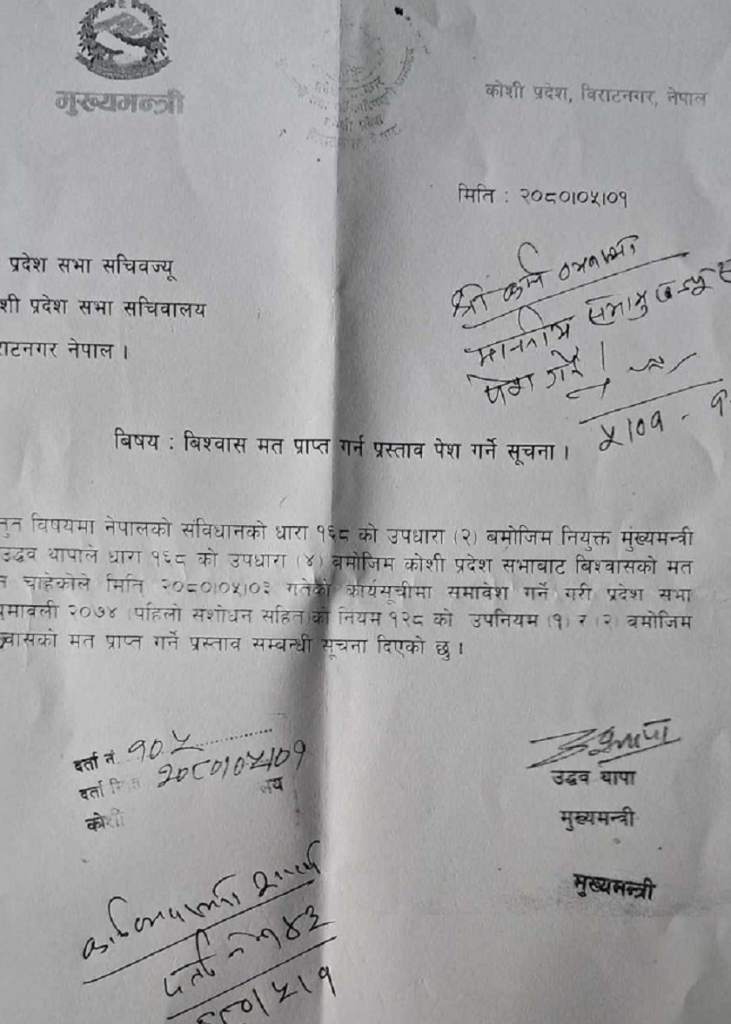 मुख्यमन्त्री
कोशी प्रदेश, विराटनगर, नेपाल
मिति : २०८०।०५।०१
प्रदेश सभा सचिवज्यू
शी प्रदेश सभा सचिवालय
राटनगर नेपाल ।
माननीय सभामुखज्यू
पेश गर्ने ।
५।०१
बिषय : बिश्वास मत प्राप्त गर्न प्रस्ताव पेश गर्ने सूचना ।
तुत विषयमा नेपालको संविधानको धारा १६८ को उपधारा (२) बमोजिम नियुक्त मुख्यमन्त्री
उद्धव थापाले धारा १६८ को उपधारा (४) बमोजिम कोशी प्रदेश सभाबाट बिश्वासको मत
न चाहेकोले मिति २०८०।०५।०३ गतेको कार्यसूचीमा समावेश गर्ने गरी प्रदेश सभा
यमावली २०७४ (पहिलो संशोधन सहित) को नियम १२८ को उपनियम (१) र (२) बमोजिम
्वासको मत प्राप्त गर्ने प्रस्ताव सम्बन्धी सूचना दिएको छु ।
दर्ता नं. १०५
दर्ता मिति २०८०।०५।०१
उद्धव थापा
मुख्यमन्त्री
मुख्यमन्त्री
कार्यव्यवस्था शाखा
दर्ता नं ४३